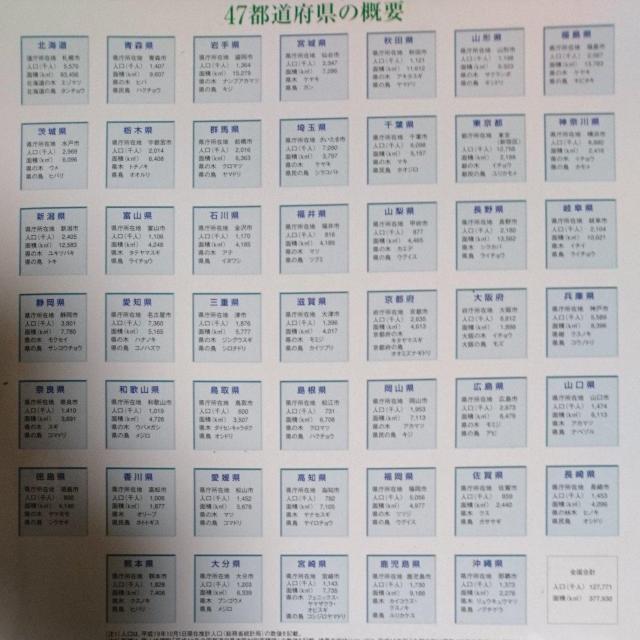 47都道府県の概要
北海道
道庁所在地 札幌市
人口(千人) 5,570
北海道の木 エゾマツ
北海道の鳥 タンチョウ
青森県
県庁所在地 青森市
人口(千人) 1,407
面積(k㎡) 9,607
県の木 ヒバ
県民鳥 ハクチョウ
岩手県
県庁所在地 盛岡市
人口(千人) 1,364
面積(k㎡) 15,279
県の木 ナンブアカマツ
県の鳥 キジ
宮城県
県庁所在地 仙台市
人口(千人) 2,347
県の木 ケヤキ
県の鳥 ガン
秋田県
県庁所在地 秋田市
人口(千人) 1,121
面積(k㎡) 11,612
県の木 アキタスギ
県の鳥 ヤマドリ
山形県
県庁所在地 山形市
人口(千人) 1,198
県の木 サクランボ
県の鳥 オシドリ
福島県
県庁所在地 福島市
県の木 ケヤキ
県の鳥 キビタキ
茨城県
県庁所在地 水戸市
人口(千人) 2,969
面積(k㎡) 6,096
県の木 ウメ
県の鳥 ヒバリ
栃木県
県庁所在地 宇都宮市
人口(千人) 2,014
面積(k㎡) 6,408
県の木 トチノキ
県の鳥 オオルリ
群馬県
県庁所在地 前橋市
人口(千人) 2,016
面積(k㎡) 6,363
県の木 クロマツ
県の鳥 ヤマドリ
埼玉県
県庁所在地 さいたま市
面積(k㎡) 3,797
県の木 ケヤキ
県の鳥 シラコバト
千葉県
県庁所在地 千葉市
人口(千人) 6,098
面積(k㎡) 5,157
県の木 マキ
県民鳥 ホオジロ
東京都
人口(千人) 12,758
都の木 イチョウ
都民の鳥 ユリカモメ
神奈川県
県庁所在地 横浜市
面積(k㎡) 2,416
県の木 イチョウ
県の鳥 カモメ
新潟県
県庁所在地 新潟市
人口(千人) 2,405
面積(k㎡) 12,583
県の木 ユキツバキ
県の鳥 トキ
富山県
県庁所在地 富山市
人口(千人) 1,106
面積(k㎡) 4,248
県の木 タテヤマスギ
県の鳥 ライチョウ
石川県
県庁所在地 金沢市
人口(千人) 1,170
面積(k㎡) 4,185
県の木 アテ
県の鳥 イヌワシ
福井県
県庁所在地 福井市
人口(千人) 816
面積(k㎡) 4,189
県の木 マツ
県の鳥 ツグミ
山梨県
県庁所在地 甲府市
人口(千人) 877
面積(k㎡) 4,465
県の木 カエデ
県の鳥 ウグイス
長野県
県庁所在地 長野市
人口(千人) 2,180
面積(k㎡) 13,562
県の木 シラカバ
県の鳥 ライチョウ
岐阜県
県庁所在地 岐阜市
人口(千人) 2,104
面積(k㎡) 10,621
県の木 イチイ
県の鳥 ライチョウ
静岡県
県庁所在地 静岡市
人口(千人) 3,801
面積(k㎡) 7,780
県の木 モクセイ
県の鳥 サンコウチョウ
愛知県
県庁所在地 名古屋市
人口(千人) 7,360
面積(k㎡) 5,165
県の木 ハナノキ
県の鳥 コノハズク
三重県
県庁所在地 津市
人口(千人) 1,876
面積(k㎡) 5,777
県の木 ジングウスギ
県の鳥 シロチドリ
滋賀県
県庁所在地 大津市
人口(千人) 1,396
面積(k㎡) 4,017
県の木 モミジ
県の鳥 カイツブリ
京都府
府庁所在地 京都市
人口(千人) 2,635
面積(k㎡) 4,613
京都府の木
キタヤマスギ
京都府の鳥
オオミズナギドリ
大阪府
府庁所在地 大阪市
人口(千人) 8,812
大阪の木 イチョウ
大阪の鳥 モズ
兵庫県
県庁所在地 神戸市
人口(千人) 5,589
県樹 クスノキ
県鳥 コウノトリ
奈良県
県庁所在地 奈良市
人口(千人) 1,410
面積(k㎡) 3,691
県の木 スギ
県の鳥 コマドリ
和歌山県
県庁所在地 和歌山市
人口(千人) 1,019
面積(k㎡) 4,726
県の木 ウバメガシ
県の鳥 メジロ
鳥取県
県庁所在地 鳥取市
人口(千人) 600
面積(k㎡) 3,507
県の木 ダイセンキャラボク
県の鳥 オシドリ
島根県
県庁所在地 松江市
人口(千人) 731
県の木 クロマツ
県の鳥 ハクチョウ
岡山県
県庁所在地 岡山市
人口(千人) 1,953
面積(k㎡) 7,113
県の木 アカマツ
県の鳥 キジ
広島県
県庁所在地 広島市
人口(千人) 2,873
面積(k㎡) 8,479
県の木 モミジ
県の鳥 アビ
山口県
県庁所在地 山口市
人口(千人) 1,474
面積(k㎡) 6,113
県の木 アカマツ
県の鳥 ナベヅル
徳島県
県庁所在地 徳島市
面積(k㎡) 4,146
県の木 ヤマモモ
県の鳥 シラサギ
香川県
県庁所在地 高松市
人口(千人) 1,006
面積(k㎡) 1,877
県木 オリーブ
県民鳥 ホトトギス
愛媛県
県庁所在地 松山市
人口(千人) 1,452
県の木 マツ
県の鳥 コマドリ
高知県
県庁所在地 高知市
人口(千人) 782
面積(k㎡) 7,105
県の木 ヤナセスギ
県の鳥 ヤイロチョウ
福岡県
県庁所在地 福岡市
人口(千人) 5,056
面積(k㎡) 4,977
県の木 ツツジ
県の鳥 ウグイス
佐賀県
県庁所在地 佐賀市
人口(千人) 859
面積(k㎡) 2,440
県の木 クス
県の鳥 カササギ
長崎県
県庁所在地 長崎市
人口(千人) 1,453
県の鳥 オシドリ
熊本県
県庁所在地 熊本市
人口(千人) 1,828
県の木 クスノキ
県の鳥 ヒバリ
大分県
県庁所在地 大分市
人口(千人) 1,203
面積(k㎡) 6,339
県の木 ブンゴウメ
県の鳥 メジロ
宮崎県
県庁所在地 宮崎市
人口(千人) 1,143
面積(k㎡) 7,735
県の木 フェニックス・
ヤマザクラ・
オビスギ
県の鳥 コシジロヤマドリ
鹿児島県
県庁所在地 鹿児島市
人口(千人) 1,730
県の木 カイコウズ・
クスノキ
県の鳥 ルリカケス
沖縄県
県庁所在地 那覇市
人口(千人) 1,373
面積(k㎡) 2,276
県の木 リュウキュウマツ
県の鳥 ノグチゲラ
全国合計
人口(千人) 127,771
面積(k㎡) 377,930